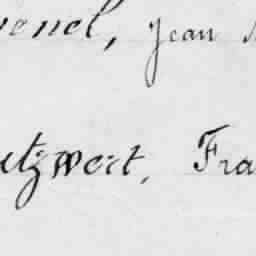 venel, Jean
utzweit, Fra